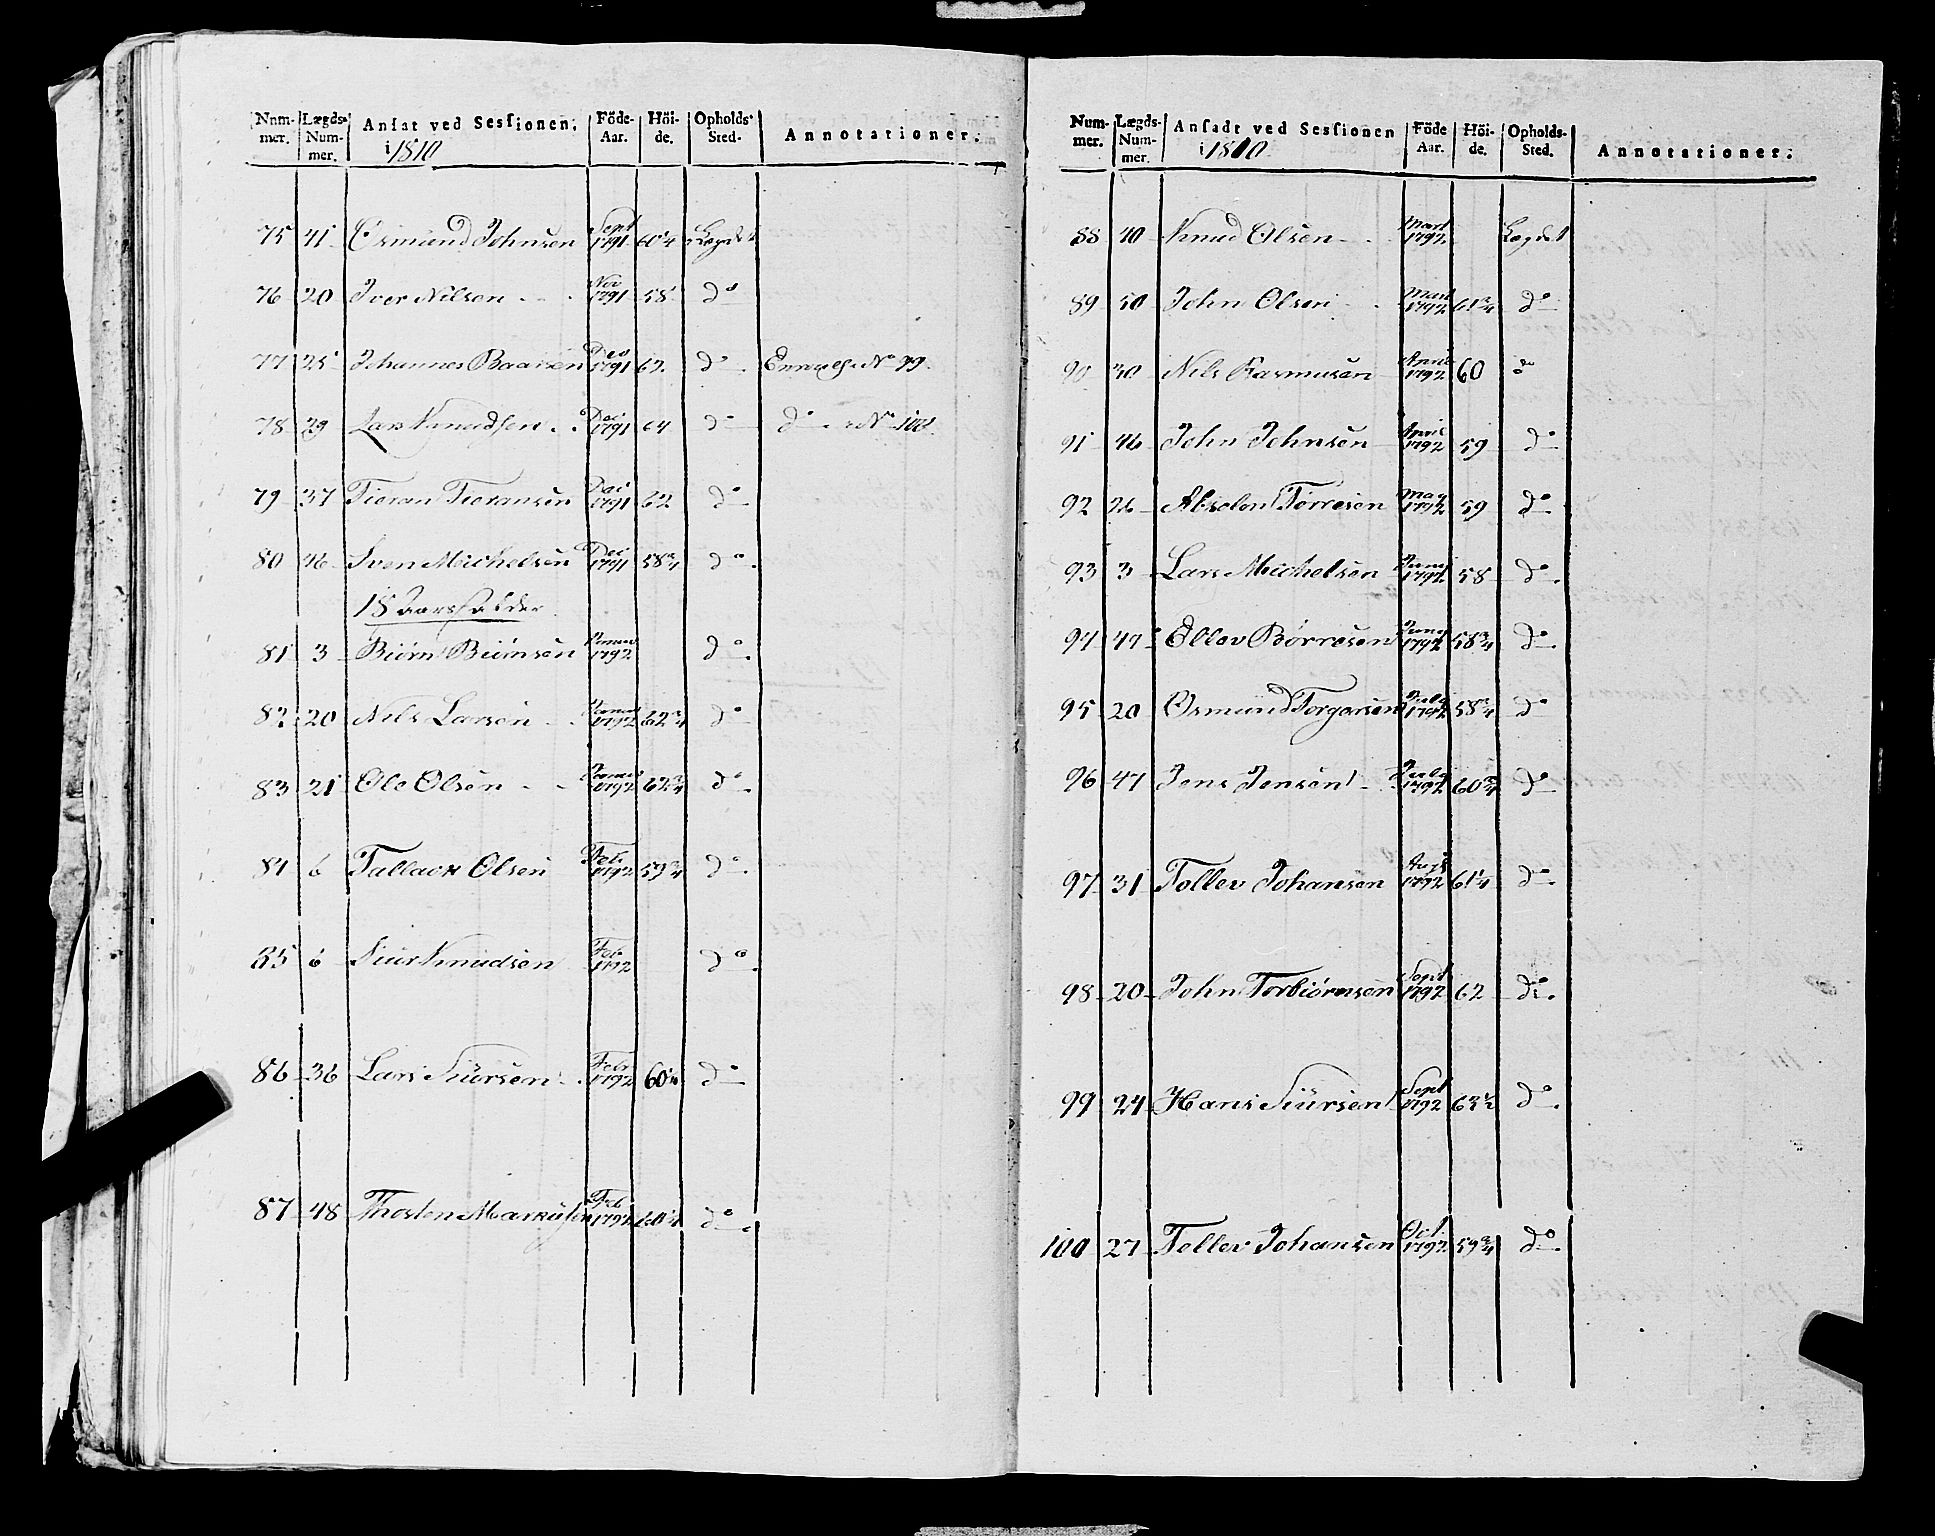 Num-mer. Lægds-Num-mer. Ansat ved Sessionen. i 1810 Föde-Aar. Höi-de. Opholds-Sted. Annotationer.
75 41 Osmund Johnsen Sept 1791 60 1/4 Lægdet
76 20 Iver Nilsen Nov 1791 58 do
77 25 Johannes Baarsen Dec 1791 62 do No 99.
78 29 Lars Knudsen Dec 1791 64 do do No 100.
79 37 Tieran Tieransen Dec 1791 62 do
80 46 Sven Michelsen Dec 1791 58 3/4 do
18 Aars Alder
81 3 Biörn Biörnsen Januar 1792 do
82 20 Nils Larsen Januar 1792 62 3/4 do
83 21 Ole Olsen Januar 1792 62 3/4 do
84 6 Tallack Olsen Feb 1792 59 3/4 do
85 6 Siur Knudsen Feb 1792 do
86 36 Lars Siursen Febr 1792 60 1/4 do
87 48 Thosten Markusen Feb 1792 60 1/4 do
Num-mer. Lægds-Num-mer. Ansadt ved Sessionen i 1810 Föde Aar. Höi-de. Opholds-Sted. Annotationer.
88 40 Knud Olsen Mart 1792 Lægdet
89 50 John Olsen Mart 1792 61 3/4 do
90 30 Nils Rasmusen April 1792 60 do
91 46 John Johnsen April 1792 59 do
92 26 Absolon Tørresen May 1792 59 do
93 3 Lars Michelsen Juni 1792 58 do
94 49 Ellev Børresen Juny 1792 58 3/4 do
95 20 Osmund Torgersen July 1792 58 3/4 do
96 47 Jens Jensen July 1792 60 3/4 do
97 31 Tollev Johansen Augt 1792 61 1/4 do
98 20 John Torbiörnsen Sept 1792 62 do
99 24 Hans Siursen Sept 1792 63 1/2 do
100 27 Tellev Johansen Oct. 1792 59 3/4 do